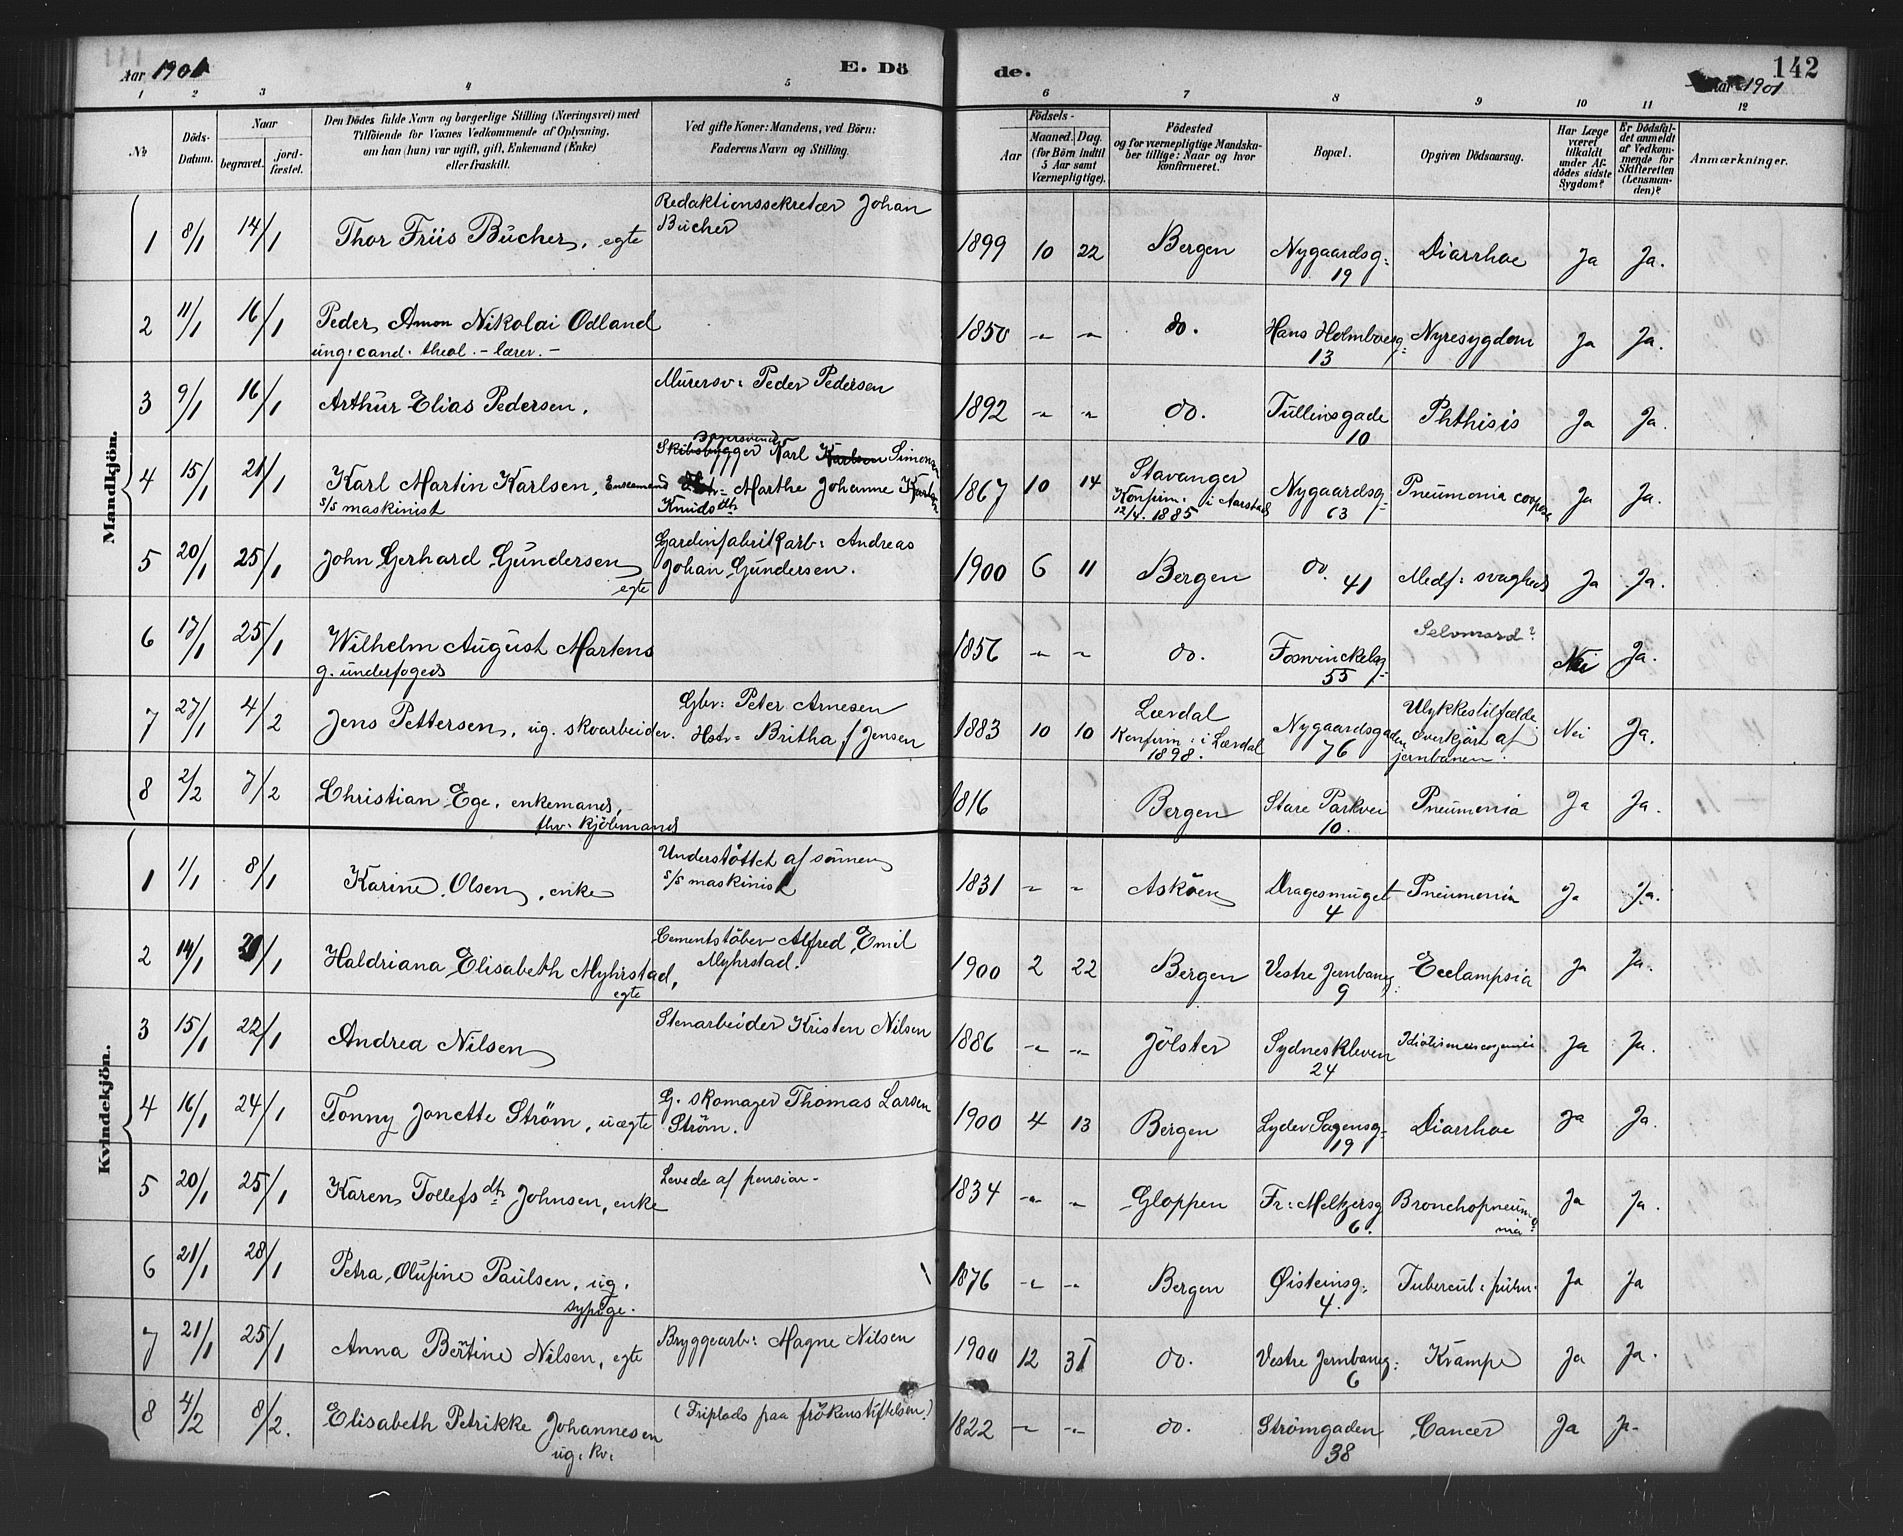 Aar 1901 E. Døde. Aar 1901 142
1 2 3 4 5 6 7 8 9 10 11 12
No
Døds-Datum.
Naar
begravet. jord-fæstet.
Den Dødes fulde Navn og borgerlige Stilling (Næringsvei) med
Tilføiende for Voxnes Vedkommende af Oplysning,
om han (hun) var ugift, gift, Enkemand (Enke)
eller fraskilt.
Ved gifte Koner: Mandens, ved Börn:
Faderens Navn og Stilling.
Fødsels-
Aar Maaned. Dag.
(for Børn indtil
5 Aar samt
Værnepligtige).
Födested
og for værnepligtige Mandska-
ber tillige: Naar og hvor
konfirmeret.
Bopæl.
Opgiven Dödsaarsag.
Har Læge
været
tilkaldt
under Af-
dödes sidste
Sygdom?
Er Dödsfal-
det anmeldt
af Vedkom-
mende for
Skifteretten
(Lensman-
den)?
Anmærkninger.
Mandkjön.
1 8/1 14/1 Thor Friis Bücher, egte Redaktionssekretær Johan
Bücher 1899 10 22 Bergen Nygaardsg:
19 Diarrhoe Ja Ja.
2 11/1 16/1 Peder Amon Nikolai Odland
ung: cand. theol. - lærer. - 1850 -"- -"- do. Hans Holmboesg:
13 Nyresygdom Ja Ja.
3 9/1 16/1 Arthur Elias Pedersen. Murersv: Peder Pedersen 1892 -"- -"- do. Tullinsgade
10 Phthisis Ja Ja.
4 15/1 21/1 Karl Martin Karlsen, Enkemand
s/s maskinist Skibsbygger Karl Karlsen Simonsen
Marthe Johanne
Knudsdtr 1867 10 14 Stavanger
Konfirm. i Aarstad
12/4. 1885 Nygaardsg:
63 Pneumonia Ja Ja.
5 20/1 25/1 John Gerhard Gundersen
egte Gardinfabrikarb: Andreas
Johan Gundersen. 1900 6 11 Bergen do.
41 Medf: svaghed Ja Ja.
6 17/1 25/1 Wilhelm August Martens
g. underfoged 1856 -"- -"- do. Fosswinckelsg:
55 Selvmord? Nei Ja.
7 27/1 4/2 Jens Pettersen, ug. skoarbeider. Gbr: Peter Arnesen
Hstr= Britha f Jensen 1883 10 10 Lærdal
Konfirm: i Lærdal
1898. Nygaardsgaden
76 Ulykkestilfælde
overkjört af
jernbanen. Nei Ja.
8 2/2 7/2 Christian Ege, enkemand,
fhv: kjöbmand 1816 Bergen Store Parkvei
10. Pneumonia Ja Ja.
Kvindekjön.
1 1/1 8/1 Karine Olsen, enke Understöttet af sönnen
s/s maskinist 1831 -"- -"- Asköen Dragesmuget
4 Pneumonia Ja Ja.
2 14/1 /1 Haldriana Elisabeth Myhrstad,
egte Cementstöber Alfred Emil
Myhrstad. 1900 2 22 Bergen Vestre Jernbaneg:
9 Ecclampsia Ja Ja.
3 15/1 22/1 Andrea Nilsen Stenarbeider Kristen Nilsen 1886 -"- -"- Jölster Sydneskleven
24 Ja Ja.
4 16/1 24/1 Tonny Jonette Ström, uægte G. skomager Thomas Larsen
Ström. 1900 4 13 Bergen Lyder Sagensg:
19 Diarrhoe Ja Ja.
5 20/1 25/1 Karen Tollefsdtr Johnsen, enke Levede af pension. 1834 -"- -"- Gloppen Fr: Meltzersg
6. Bronchopneumo-
nia Ja Ja.
6 21/1 28/1 Petra Olufine Paulsen, ug.
sypige. 1876 -"- -"- Bergen Øisteinsg:
4. Tubercul: pulm. Ja Ja
7 21/1 25/1 Anna Bertine Nilsen, egte Bryggearb: Magne Nilsen 1900 12 31 do. Vestre Jernbaneg:
6 Krampe Ja Ja.
8 4/2 8/2. Elisabeth Petrikke Johannesen
ug. kv. (Friplads paa frökenstiftelsen.) 1822 -"- -"- do. Strömgaden
38 Cancer Ja Ja.